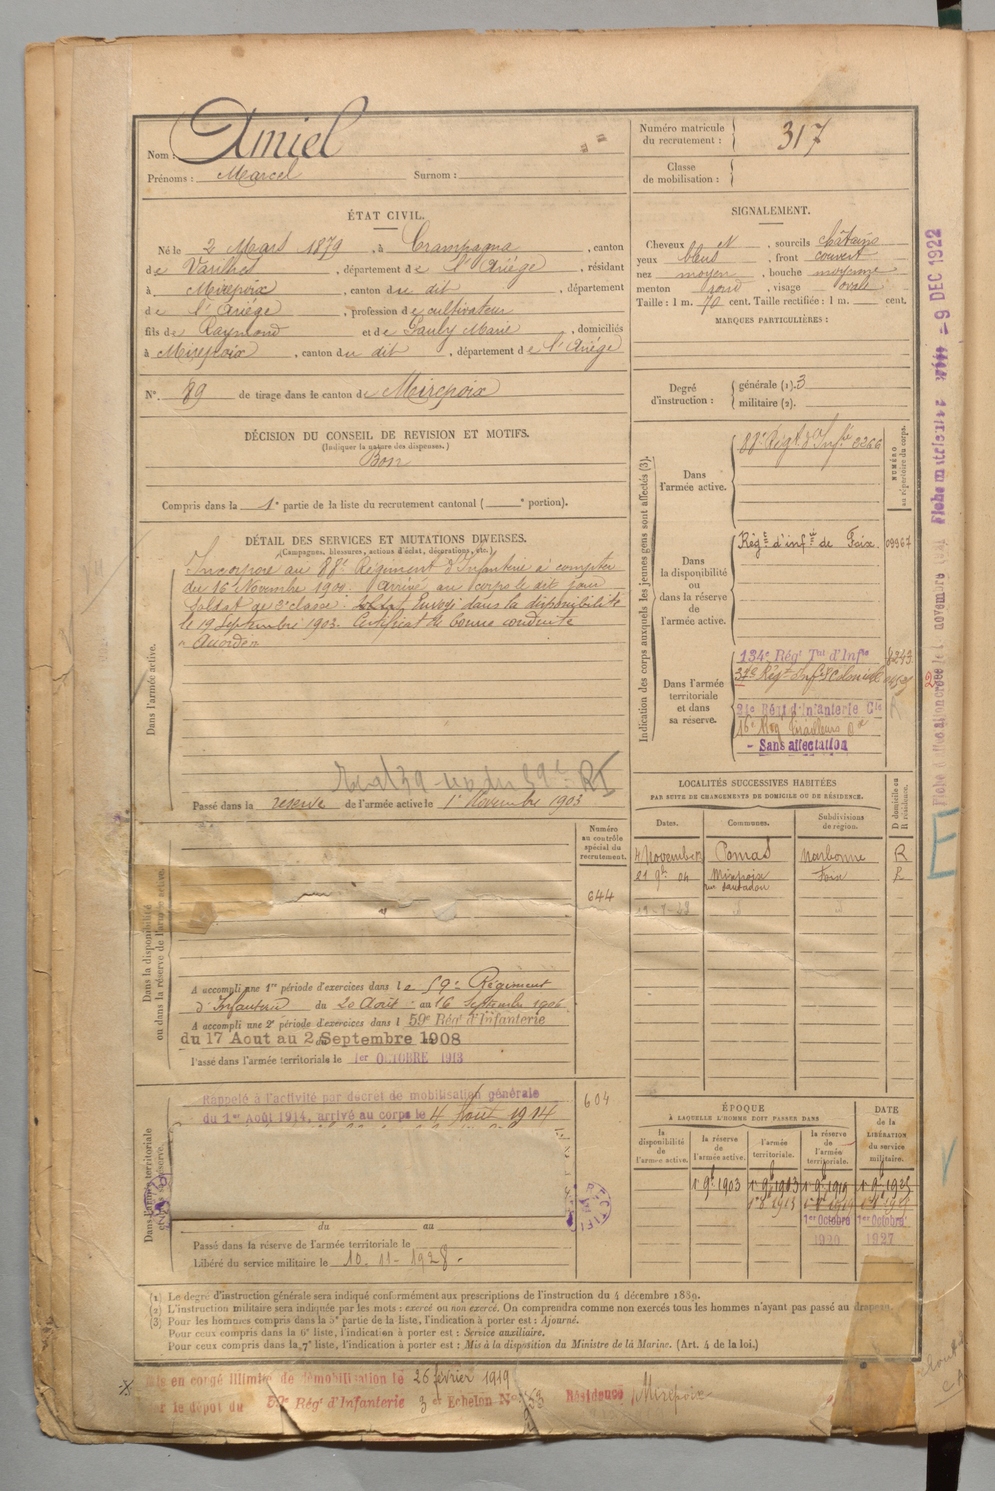 Nom : Amiel
Prénoms : Marcel Surnom :
Numéro matricule du recrutement : 317
Classe de mobilisation :
ÉTAT CIVIL.
Né le 2 Mars 1879, à Crampagna, canton
de Varilhes, département de l'Ariège, résidant
à Mirepoix, canton du dit, département
de l'Ariège, profession de cultivateur
fils de Raymond et de Pauly Marie, domiciliés
à Mirepoix, canton du dit, département de l'Ariège
N°. 89 de tirage dans le canton de Mirepoix
SIGNALEMENT.
Cheveux et, sourcils châtains
yeux bleus, front couvert
nez moyen, bouche moyenne
menton rond, visage ovale
Taille : 1 m. 70 cent. Taille rectifiée : 1 m. cent.
MARQUES PARTICULIÈRES :
Degré d'instruction : générale (1). 3
militaire (2).
DÉCISION DU CONSEIL DE REVISION ET MOTIFS.
(Indiquer la nature des dispenses.)
Bon
Compris dans la 1e partie de la liste du recrutement cantonal ( e portion).
DÉTAIL DES SERVICES ET MUTATIONS DIVERSES.
(Campagnes, blessures, actions d'éclat, décorations, etc.)
Dans l'armée active.
Incorporé au 88e Régiment d'Infanterie à compter
du 16 Novembre 1900. Arrivé au corps le dit jour
soldat de 2e classe. Envoyé dans la disponibilité
le 19 Septembre 1903. Certificat de bonne conduite
"Accordé"
Passé dans la reserve de l'armée active le 1er Novembre 1903
Indication des corps auxquels les jeunes gens sont affectés (3).
NUMÉRO au répertoire du corps.
Dans l'armée active.
88e Régt d'Infie 3266
Dans la disponibilité ou dans la réserve de l'armée active.
Régt d'infie de Foix. 09967
Dans l'armée territoriale et dans sa réserve.
134e Régt Tal d'Infie 8243
37e Régt Infie Coloniale
24e Régt d'Infanterie Cle
16e Rég Tirailleurs
- Sans affectation
LOCALITÉS SUCCESSIVES HABITÉES
PAR SUITE DE CHANGEMENTS DE DOMICILE OU DE RÉSIDENCE.
Dates. Communes. Subdivisions de région. D domicile ou R résidence.
4 Novembre Pomas Narbonne R
21 9bre 04 Mirepoix Foix R
Dans la disponibilité ou dans la réserve de l'armée active.
Numéro au contrôle spécial du recrutement.
644
A accompli une 1re période d'exercices dans le 59e Régiment
d'Infanterie du 20 Août au 16 Septembre 1906
A accompli une 2e période d'exercices dans l 59e Rég d'Infanterie
du 17 Aout au 2 Septembre 1908
Passé dans l'armée territoriale le 1er OCTOBRE 1913
Dans l'armée territoriale et dans sa réserve.
604
Rappelé à l'activité par décret de mobilisation générale
du 1er Août 1914, arrivé au corps le 4 Aout 1914
du au
Passé dans la réserve de l'armée territoriale le
Libéré du service militaire le 10-11-1928.
ÉPOQUE
À LAQUELLE L'HOMME DOIT PASSER DANS
la disponibilité de l'armée active. la réserve de l'armée active. l'armée territoriale. la réserve de l'armée territoriale. DATE de la LIBÉRATION du service militaire.
1er 9bre 1903 1er 9bre 1913 1er 9bre 1919 1er 9bre 1925
1er 8bre 1913 1er 8bre 1919
1er Octobre 1920 1er Octobre 1927
(1) Le degré d'instruction générale sera indiqué conformément aux prescriptions de l'instruction du 4 décembre 1889.
(2) L'instruction militaire sera indiquée par les mots : exercé ou non exercé. On comprendra comme non exercés tous les hommes n'ayant pas passé au drapeau.
(3) Pour les hommes compris dans la 5e partie de la liste, l'indication à porter est : Ajourné.
Pour ceux compris dans la 6e liste, l'indication à porter est : Service auxiliaire.
Pour ceux compris dans la 7e liste, l'indication à porter est : Mis à la disposition du Ministre de la Marine. (Art. 4 de la loi.)
Mis en congé illimité de démobilisation le 26 février 1919
par le dépôt du 59e Régt d'Infanterie 3e Echelon No 53 Résidence Mirepoix
-9 DEC 1922